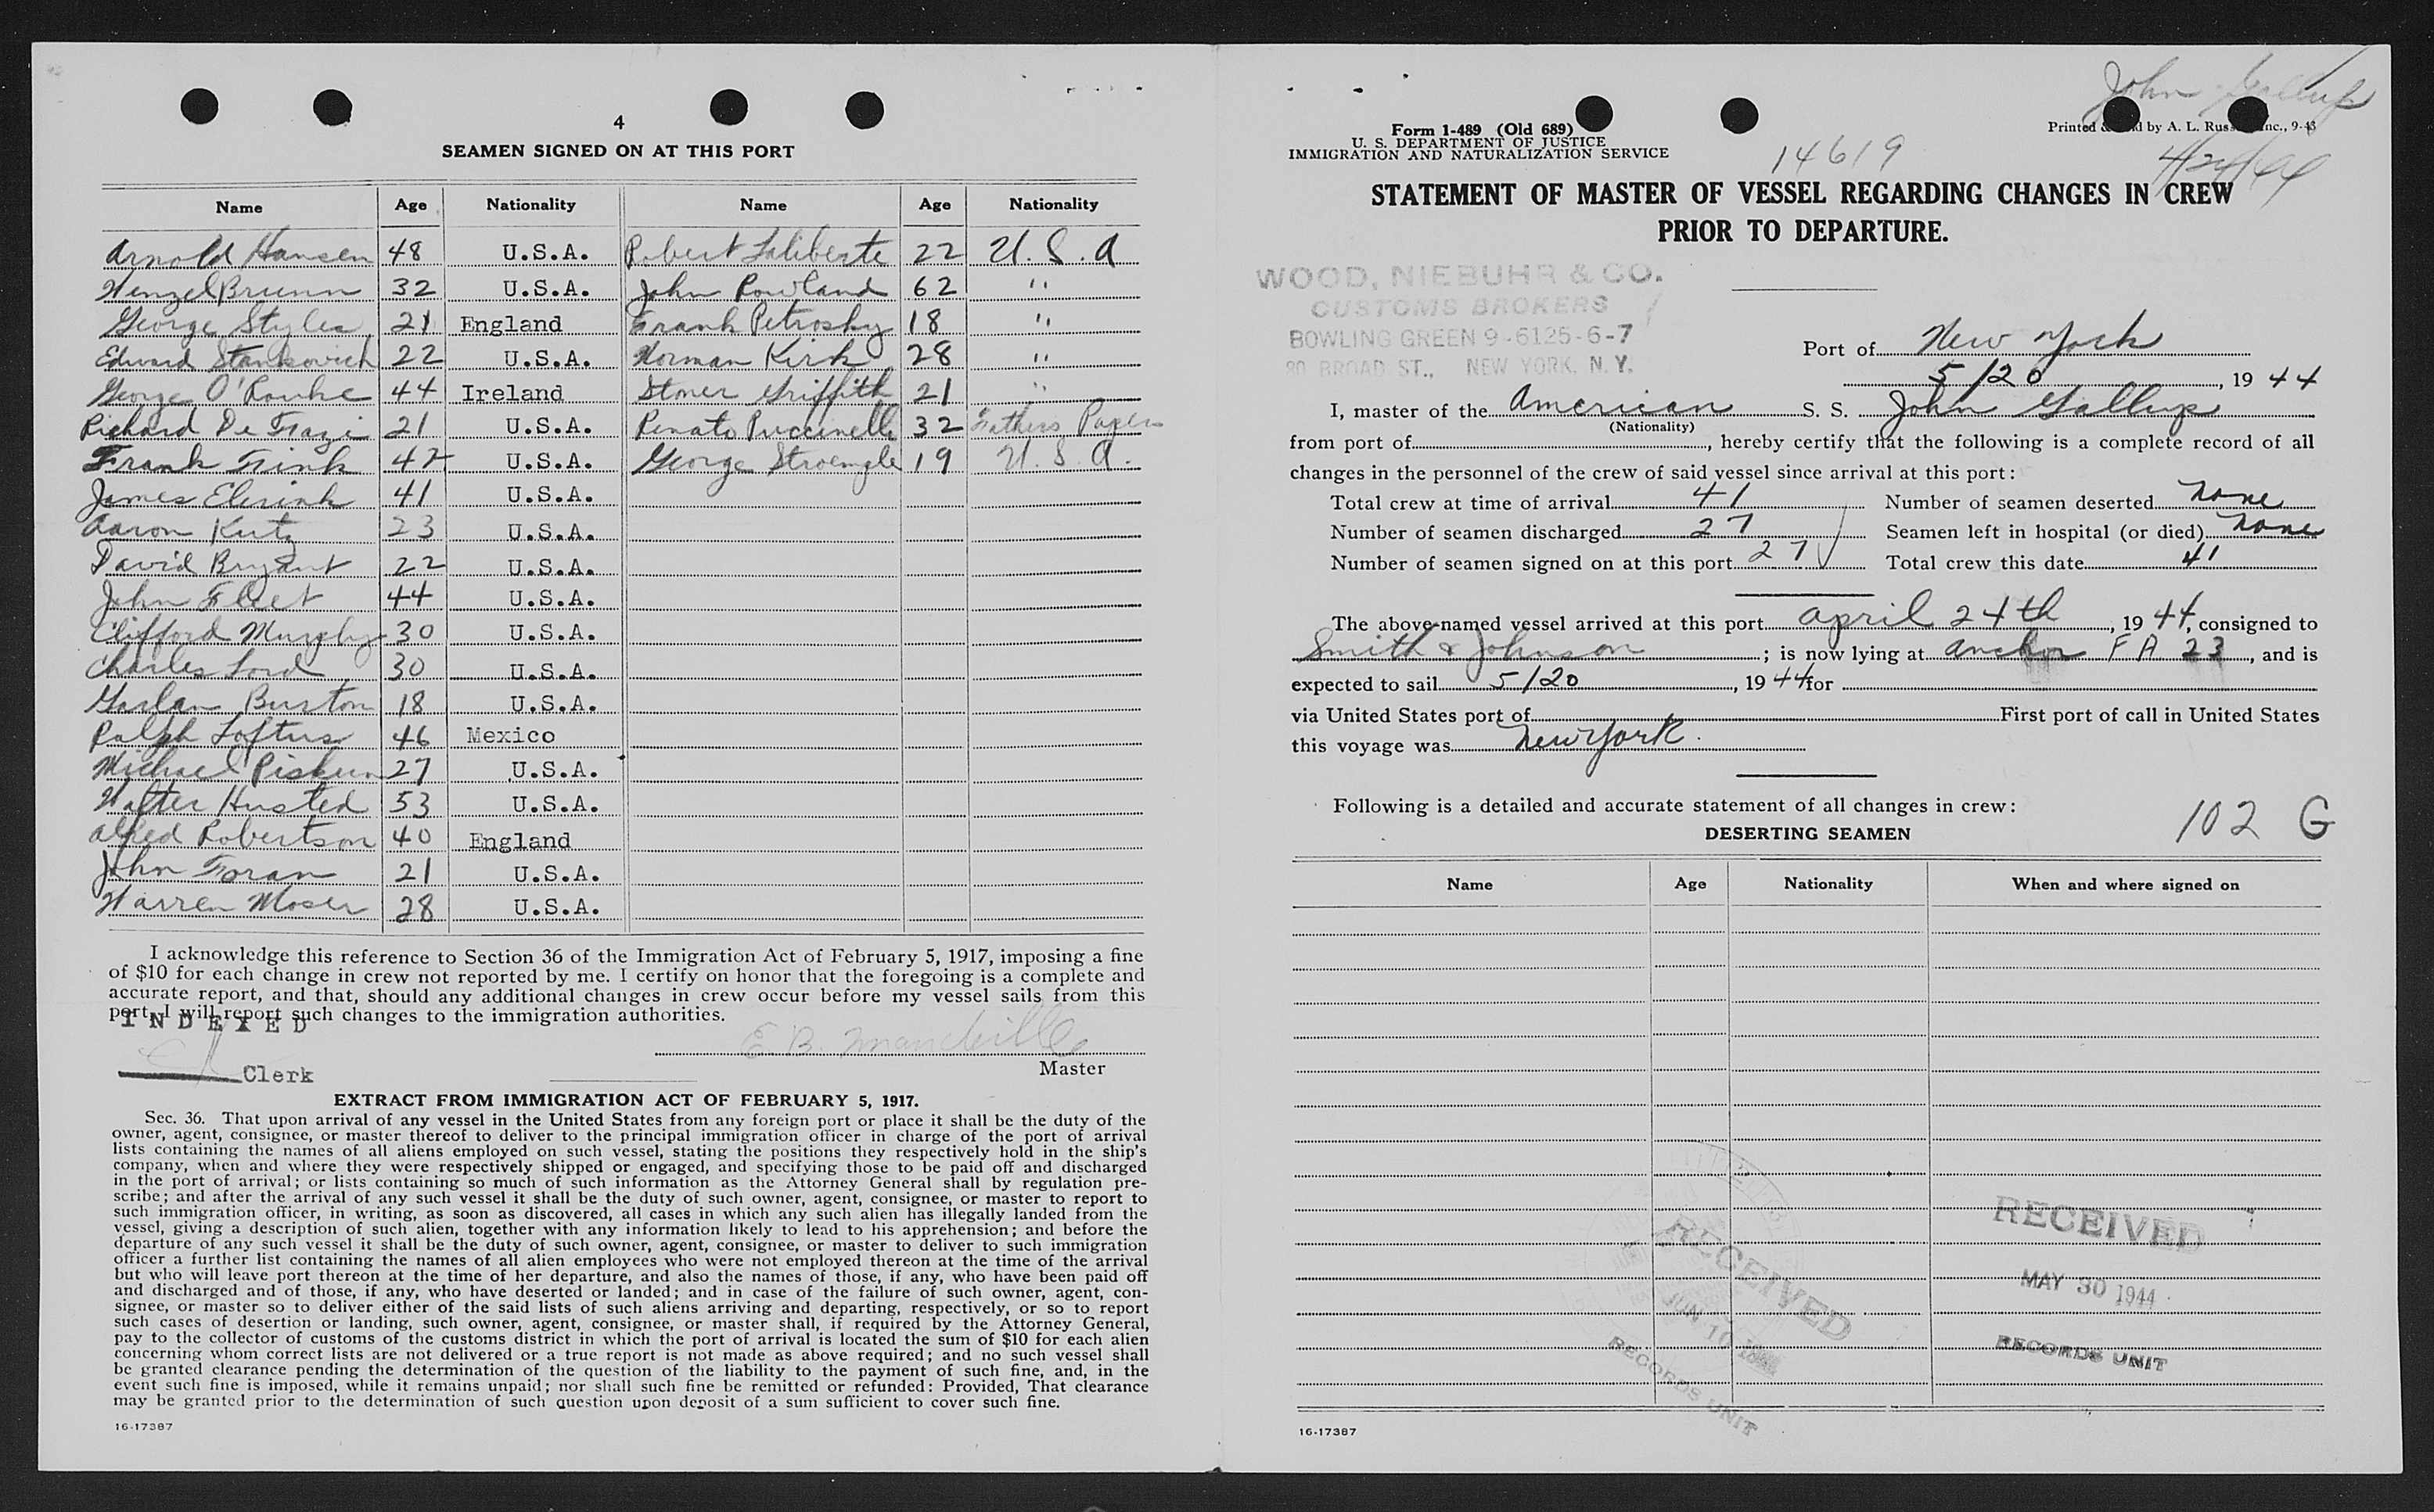 4
SEAMEN SIGNED ON AT THIS PORT
Name Age Nationality Name Age Nationality
Arnold Hansen 48 U.S.A. Robert Laliberte 22 U.S.A
Wenzel Brunn 32 U.S.A. John Rowland 62 "
George Styles 21 England Frank Petrosky 18 "
Edward Stankovich 22 U.S.A. Norman Kirk 28 "
George O'Rourke 44 Ireland Stoner Griffith 21 "
Richard De Fazi 21 U.S.A. Renato Puccinelli 32 Fathers Papers
Frank Frink 42 U.S.A. George Stroemple 19 U.S.A.
James 41 U.S.A.
Aaron Kutz 23 U.S.A.
David Bryant 22 U.S.A.
John Fleet 44 U.S.A.
Clifford Murphy 30 U.S.A.
Charles Lord 30 U.S.A.
Garlan Burston 18 U.S.A.
Ralph Loftus 46 Mexico
Michael Piskun 27 U.S.A.
Walter Husted 53 U.S.A.
Alfred Robertson 40 England
John Foran 21 U.S.A.
Warren Moser 28 U.S.A.
I acknowledge this reference to Section 36 of the Immigration Act of February 5, 1917, imposing a fine
of $10 for each change in crew not reported by me. I certify on honor that the foregoing is a complete and
accurate report, and that, should any additional changes in crew occur before my vessel sails from this
port, I will report such changes to the immigration authorities.
INDEXED
E. B. Mandeville
Clerk
Master
EXTRACT FROM IMMIGRATION ACT OF FEBRUARY 5, 1917.
Sec. 36. That upon arrival of any vessel in the United States from any foreign port or place it shall be the duty of the
owner, agent, consignee, or master thereof to deliver to the principal immigration officer in charge of the port of arrival
lists containing the names of all aliens employed on such vessel, stating the positions they respectively hold in the ship's
company, when and where they were respectively shipped or engaged, and specifying those to be paid off and discharged
in the port of arrival; or lists containing so much of such information as the Attorney General shall by regulation pre-
scribe; and after the arrival of any such vessel it shall be the duty of such owner, agent, consignee, or master to report to
such immigration officer, in writing, as soon as discovered, all cases in which any such alien has illegally landed from the
vessel, giving a description of such alien, together with any information likely to lead to his apprehension; and before the
departure of any such vessel it shall be the duty of such owner, agent, consignee, or master to deliver to such immigration
officer a further list containing the names of all alien employees who were not employed thereon at the time of the arrival
but who will leave port thereon at the time of her departure, and also the names of those, if any, who have been paid off
and discharged and of those, if any, who have deserted or landed; and in case of the failure of such owner, agent, con-
signee, or master so to deliver either of the said lists of such aliens arriving and departing, respectively, or so to report
such cases of desertion or landing, such owner, agent, consignee, or master shall, if required by the Attorney General,
pay to the collector of customs of the customs district in which the port of arrival is located the sum of $10 for each alien
concerning whom correct lists are not delivered or a true report is not made as above required; and no such vessel shall
be granted clearance pending the determination of the question of the liability to the payment of such fine, and, in the
event such fine is imposed, while it remains unpaid; nor shall such fine be remitted or refunded: Provided, That clearance
may be granted prior to the determination of such question upon deposit of a sum sufficient to cover such fine.
16-17387
John Gallup
Form 1-489 (Old 689)
Printed & by A. L. Inc., 9-43
U. S. DEPARTMENT OF JUSTICE
IMMIGRATION AND NATURALIZATION SERVICE
14619
4/24/44
STATEMENT OF MASTER OF VESSEL REGARDING CHANGES IN CREW
PRIOR TO DEPARTURE.
WOOD, NIEBUHR & CO.
CUSTOMS BROKERS
BOWLING GREEN 9-6125-6-7
80 BROAD ST., NEW YORK, N. Y.
Port of New York
5/20, 19 44
I, master of the American S. S. John Gallup
(Nationality)
from port of, hereby certify that the following is a complete record of all
changes in the personnel of the crew of said vessel since arrival at this port:
Total crew at time of arrival 41 Number of seamen deserted None
Number of seamen discharged 27 Seamen left in hospital (or died) None
Number of seamen signed on at this port 27 Total crew this date 41
The above-named vessel arrived at this port April 24th, 19 44, consigned to
Smith & Johnson; is now lying at anchor F A 23, and is
expected to sail 5/20, 19 44 for
via United States port of First port of call in United States
this voyage was New York.
Following is a detailed and accurate statement of all changes in crew:
102 G
DESERTING SEAMEN
Name Age Nationality When and where signed on
RECEIVED
MAY 30 1944
RECORDS UNIT
RECEIVED
JUN 10
RECORDS UNIT
16-17387